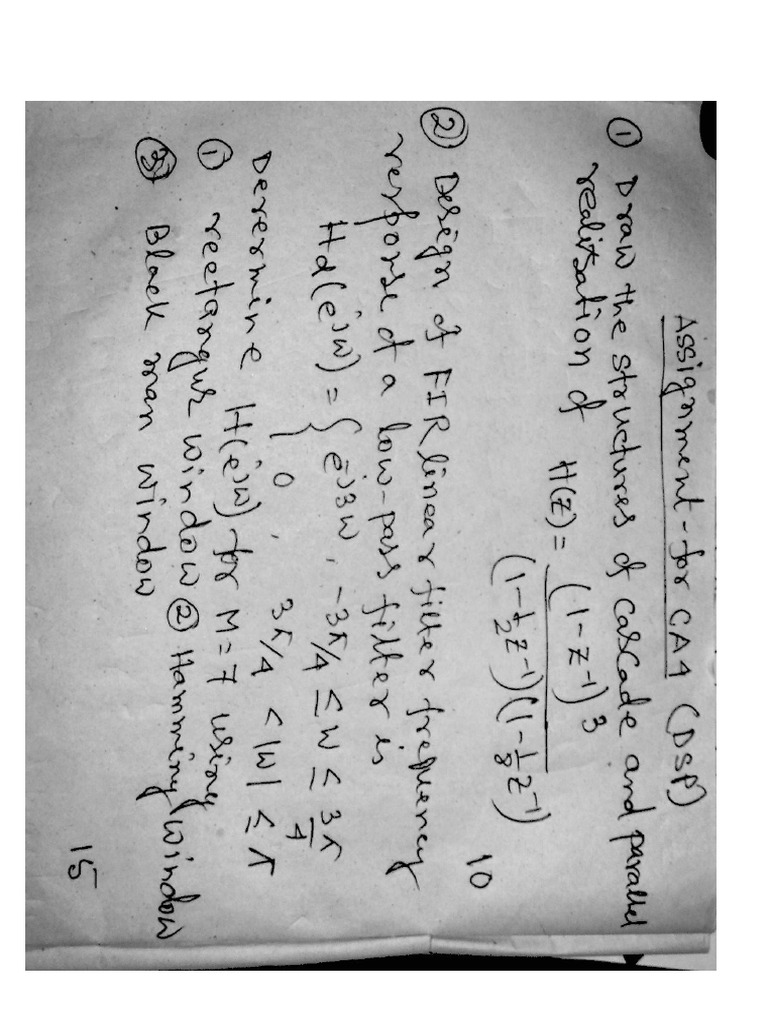 Assignment-for CA4 (DSP)
① Draw the structures of cascade and parallel
realisation of H(z) = (1-z⁻¹)³ / (1-½z⁻¹)(1-⅛z⁻¹)
10
② Design of FIR linear filter frequency
response of a low-pass filter is
Hd(e^jw) = { e^-j3w, -3π/4 ≤ w ≤ 3π/4
0, 3π/4 < |w| ≤ π
Determine H(e^jw) for M=7 using
① rectangur window ② Hamming window
③ Black man window
15